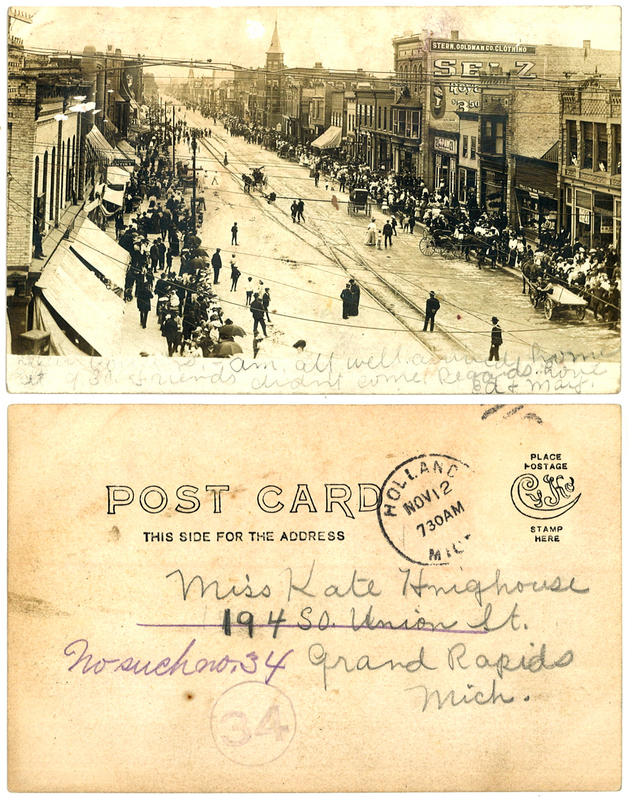 STERN, GOLDMAN CO. CLOTHING
SELZ
ROYAL
am all well. arrived home
at 9 30. friends didnt come. Regards. love
Ed & Mary.
POST CARD
THIS SIDE FOR THE ADDRESS
HOLLAND
NOV 12
730AM
MICH
PLACE
POSTAGE
CyKo
STAMP
HERE
Miss Kate Hnighouse
194 So. Union St.
No such no. 34 Grand Rapids
Mich.
34